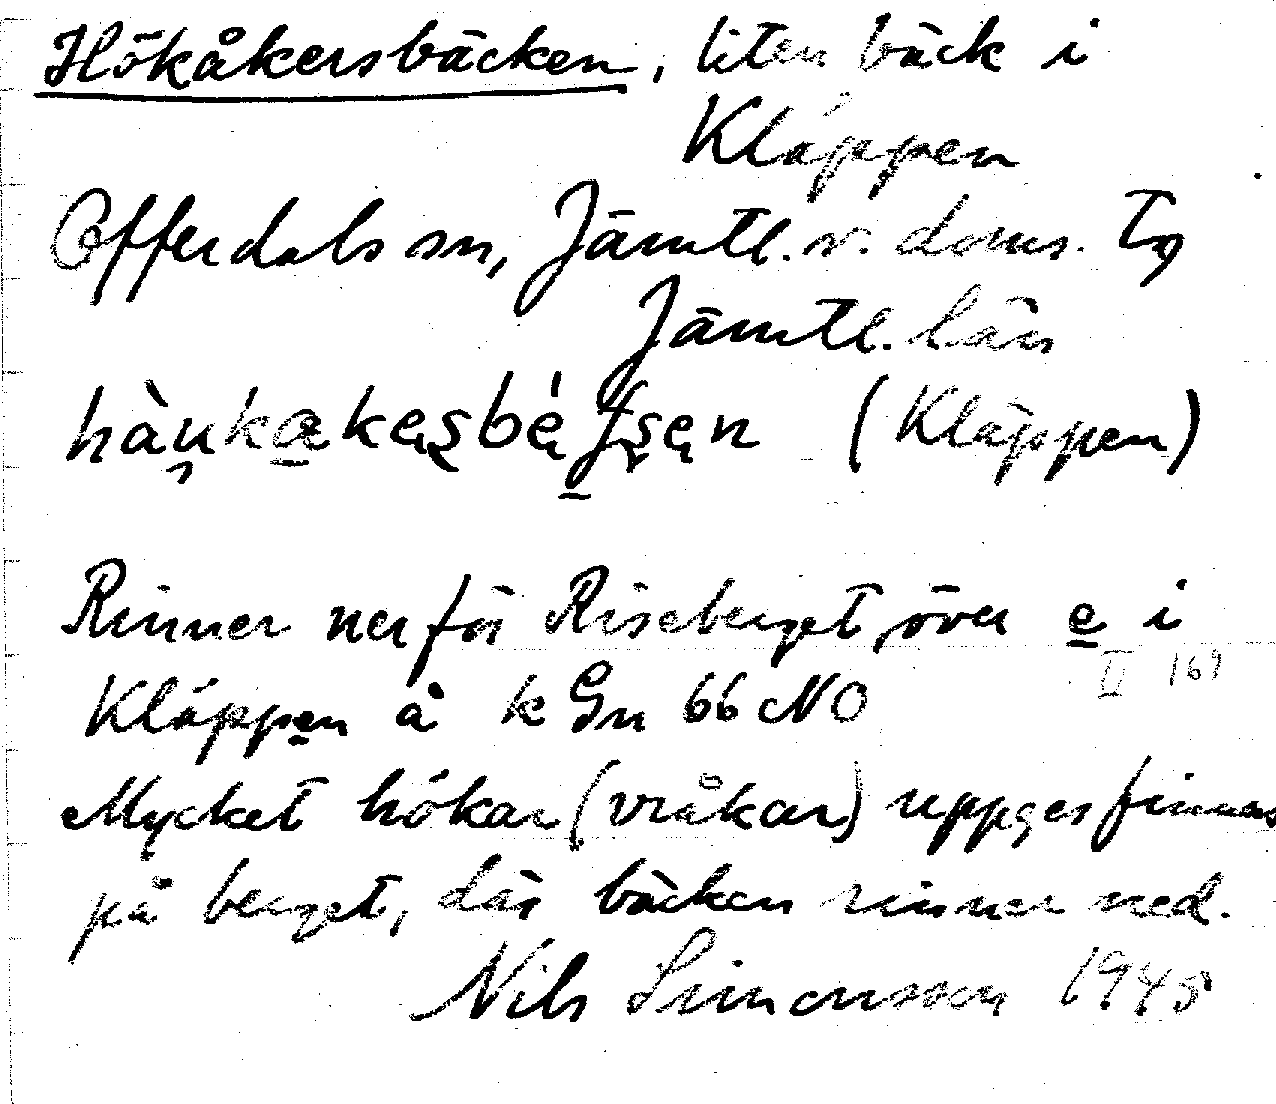 Hökåkersbäcken, liten bäck i
Kläppen
Offerdals sn, Jämtl. v. doms. Tg
Jämtl. län
(Kläppen)
Rinner ner för Riseberget, över e i
II 169
Kläppen å k Gn 66 NO
Mycket hökar (vråkar) uppges finnas
på berget, där bäcken rinner ned.
Nils Simonsson 1945